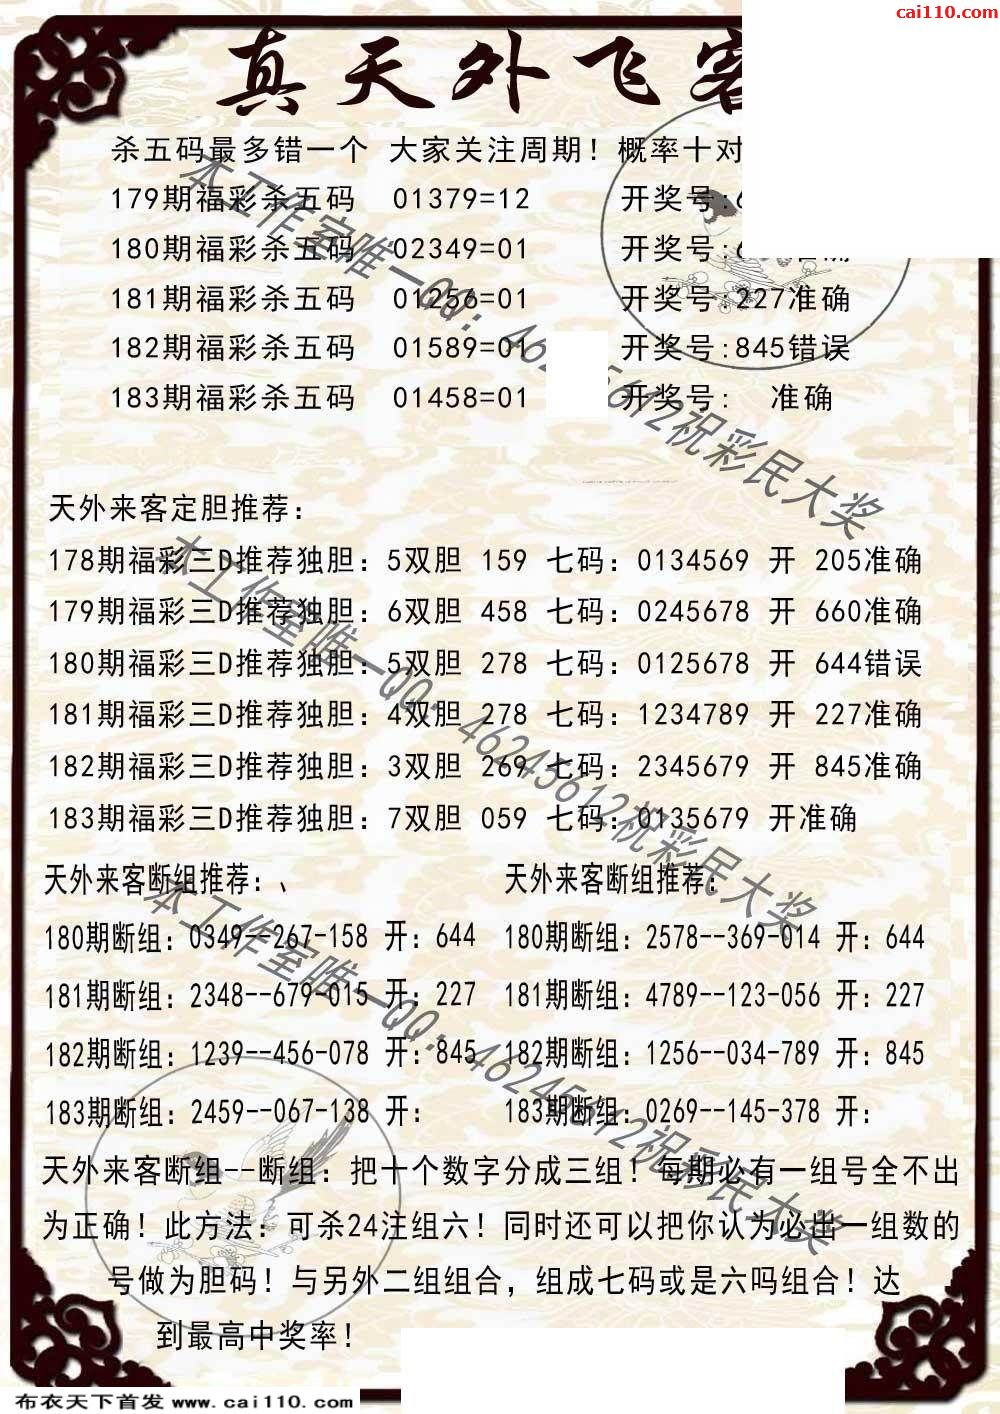 cai110.com
真天外飞客
杀五码最多错一个 大家关注周期！概率十对
179期福彩杀五码 01379=12 开奖号:6
180期福彩杀五码 02349=01 开奖号:6 准确
181期福彩杀五码 01256=01 开奖号:227准确
182期福彩杀五码 01589=01 开奖号:845错误
183期福彩杀五码 01458=01 开奖号: 准确
本工作室唯一QQ：46245612祝彩民大奖
天外来客定胆推荐：
178期福彩三D推荐独胆：5双胆 159 七码：0134569 开 205准确
179期福彩三D推荐独胆：6双胆 458 七码：0245678 开 660准确
180期福彩三D推荐独胆：5双胆 278 七码：0125678 开 644错误
181期福彩三D推荐独胆：4双胆 278 七码：1234789 开 227准确
182期福彩三D推荐独胆：3双胆 269 七码：2345679 开 845准确
183期福彩三D推荐独胆：7双胆 059 七码：0135679 开准确
本工作室唯一QQ：46245612祝彩民大奖
天外来客断组推荐：、 天外来客断组推荐：
180期断组：0349--267-158 开：644 180期断组：2578--369-014 开：644
181期断组：2348--679-015 开：227 181期断组：4789--123-056 开：227
182期断组：1239--456-078 开：845 182期断组：1256--034-789 开：845
183期断组：2459--067-138 开： 183期断组：0269--145-378 开：
本工作室唯一QQ：46245612祝彩民大奖
天外来客断组--断组：把十个数字分成三组！每期必有一组号全不出
为正确！此方法：可杀24注组六！同时还可以把你认为必出一组数的
号做为胆码！与另外二组组合，组成七码或是六吗组合！达
到最高中奖率！
布衣天下首发 www.cai110.com